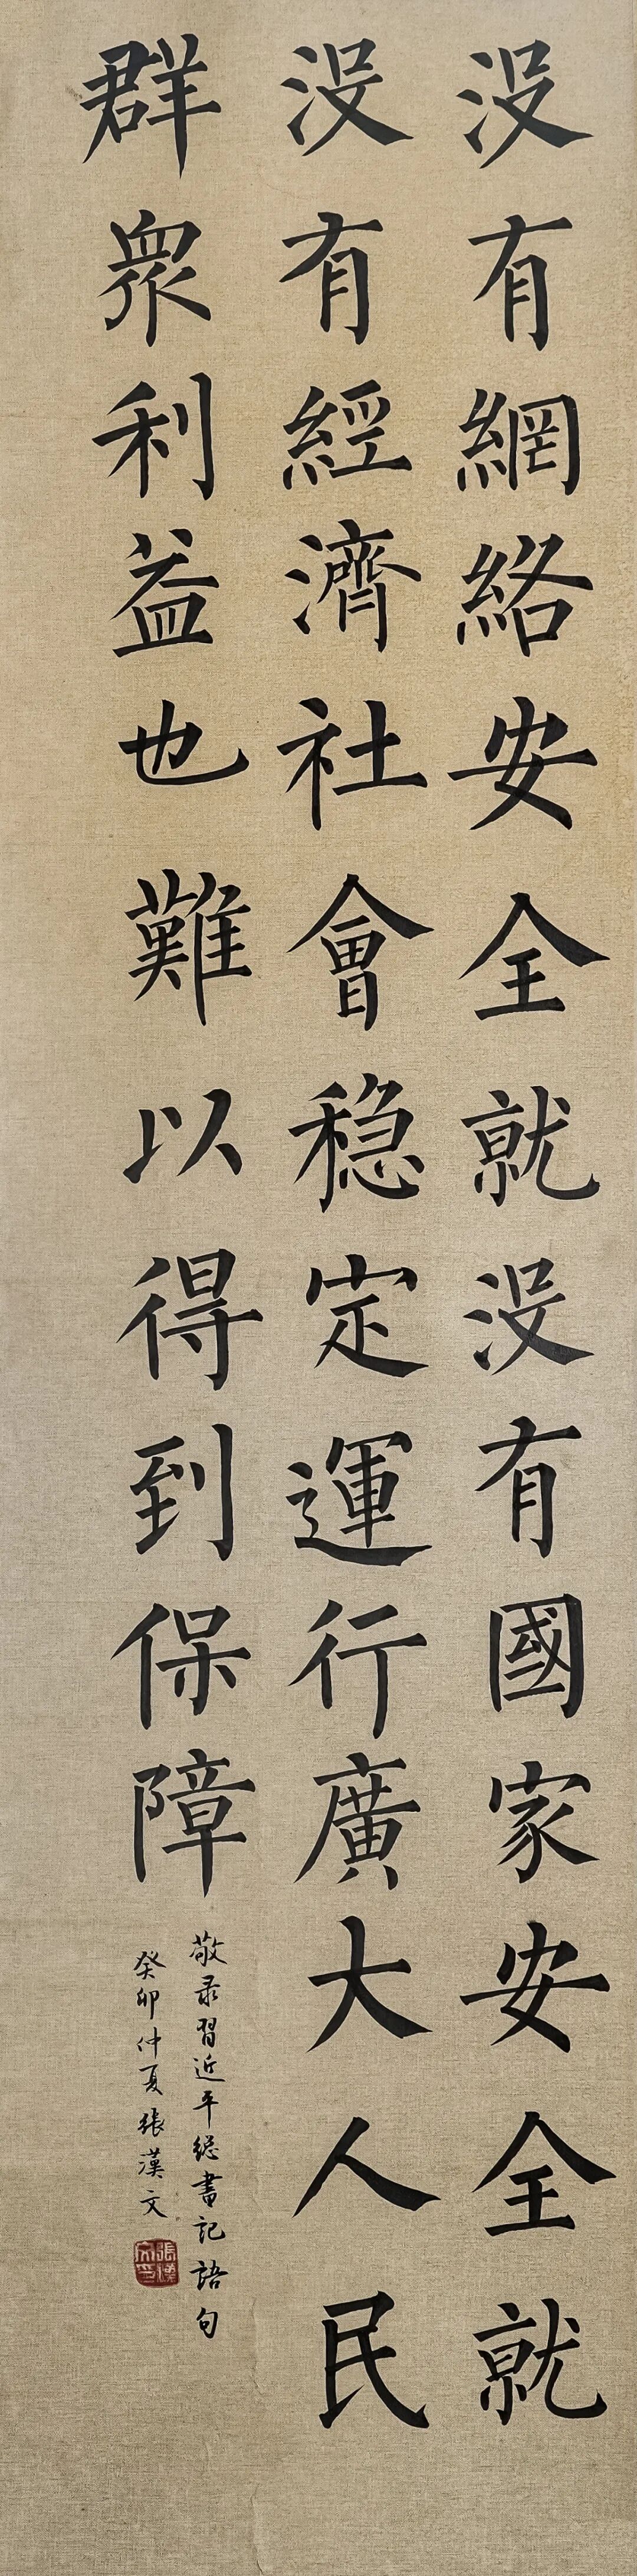 没有網絡安全就没有國家安全就
没有經濟社會穩定運行廣大人民
群衆利益也難以得到保障
敬录習近平総書記語句
癸卯仲夏張漢文
張漢文印